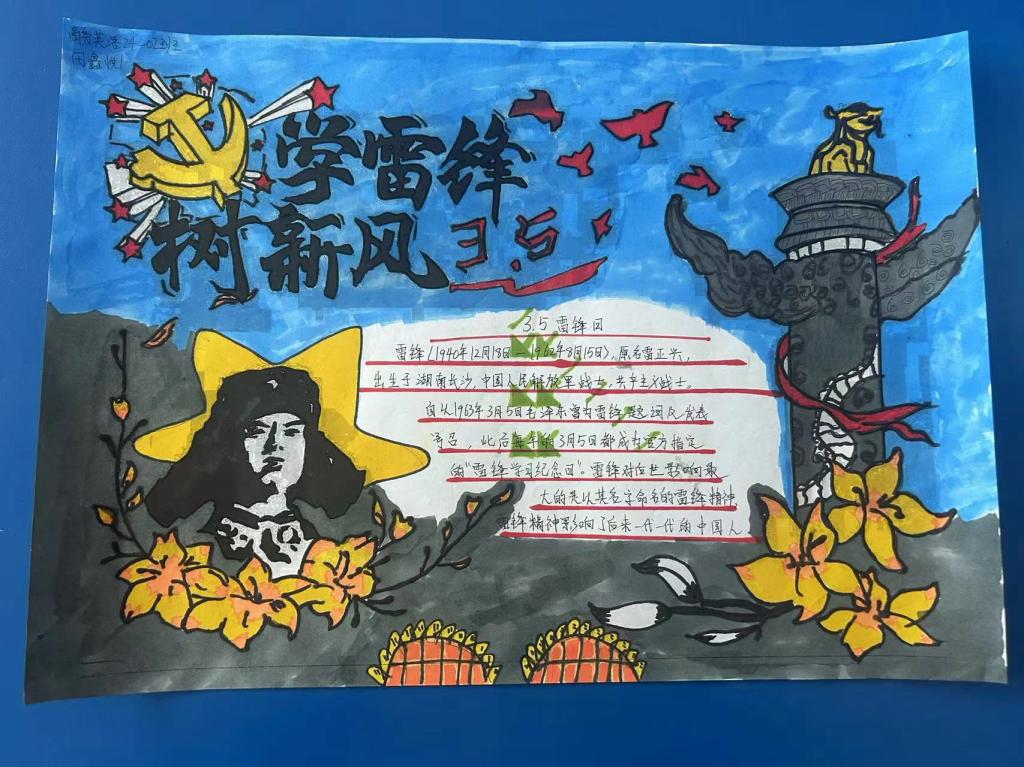 24-02班
学雷锋
树新风 3.5
3.5雷锋日
雷锋(1940年12月18日—1962年8月15日),原名雷正兴,
出生于湖南长沙,中国人民解放军战士,共产主义战士。
自从1963年3月5日毛泽东曾为雷锋题词及发表
号召,此后每年的3月5日都成为官方指定
的"雷锋学习纪念日"。雷锋对后世影响最
大的是以其名字命名的雷锋精神,
雷锋精神影响了后来一代一代的中国人